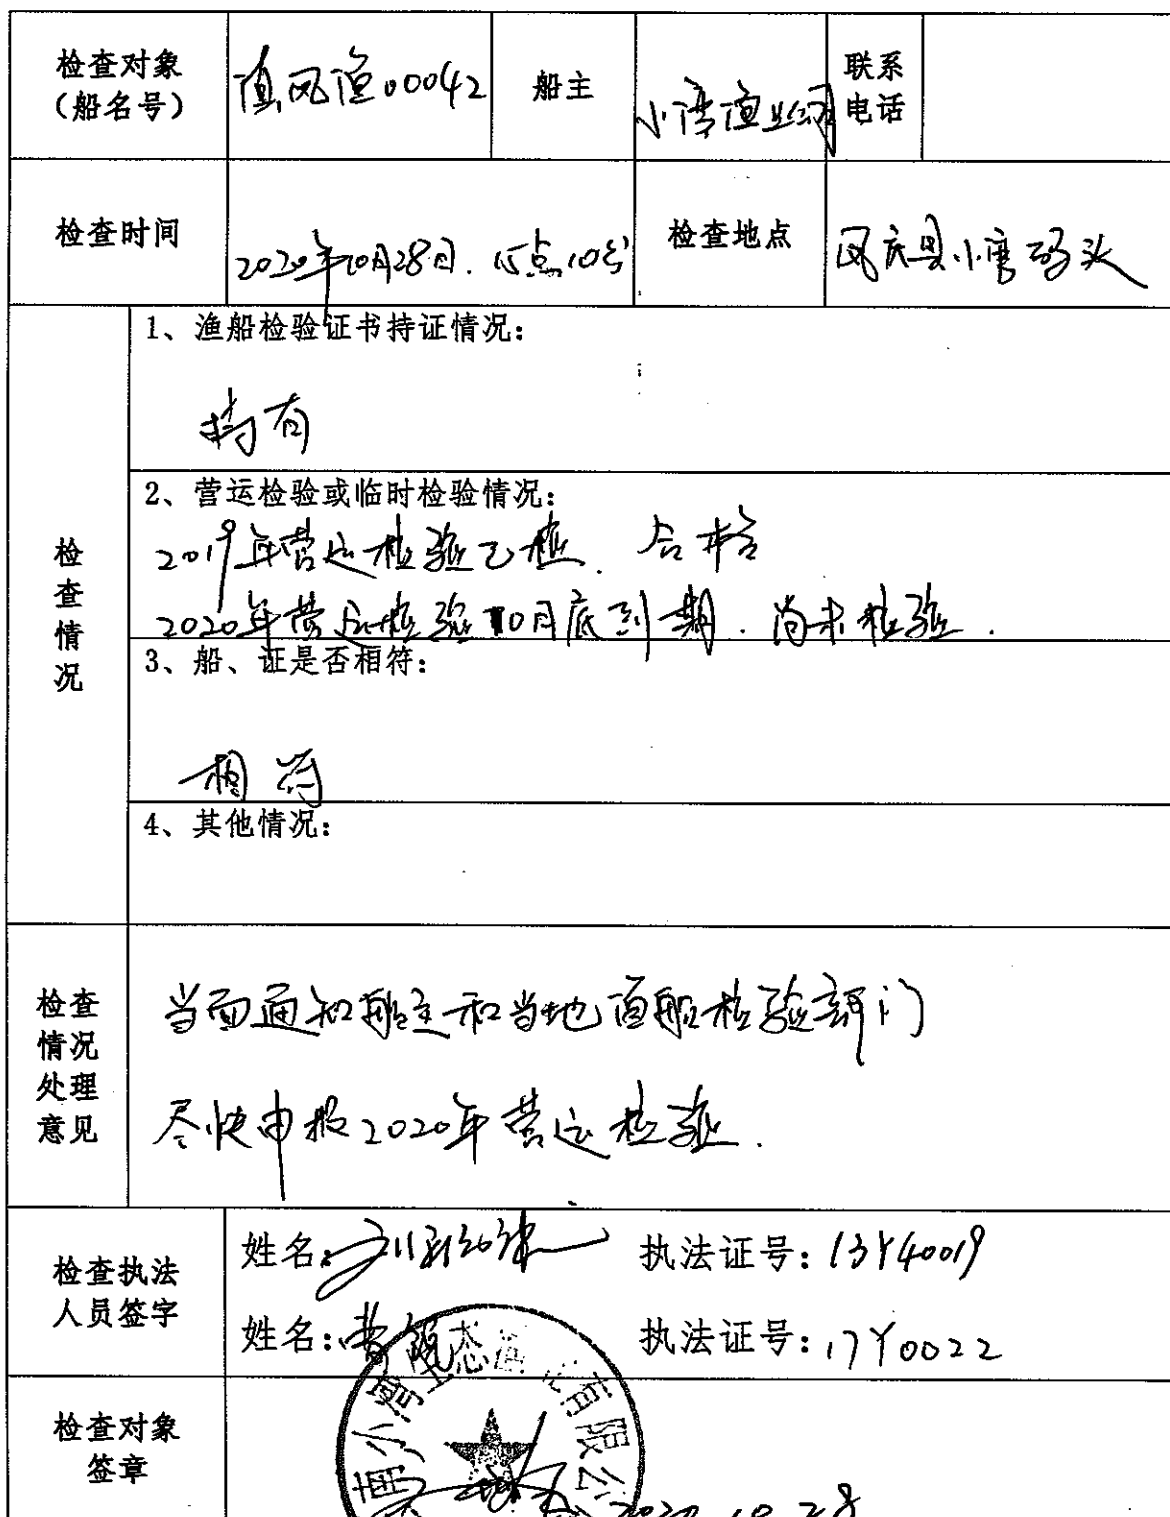 检查对象
(船名号)
滇凤渔00042
船主
小湾渔业公司
联系
电话
检查时间
2020年10月28日. 15点10分
检查地点
凤庆县小湾码头
检查情况
1、渔船检验证书持证情况:
持有
2、营运检验或临时检验情况:
2019年营运检验已检. 合格
2020年营运检验10月底到期. 尚未检验.
3、船、证是否相符:
相符
4、其他情况:
检查
情况
处理
意见
当面通知船主和当地渔船检验部门
尽快申报2020年营运检验.
检查执法
人员签字
姓名:
执法证号: 13Y40019
姓名:
执法证号: 17Y0022
检查对象
签章
南小湾生态渔业有限公
2020.10.28